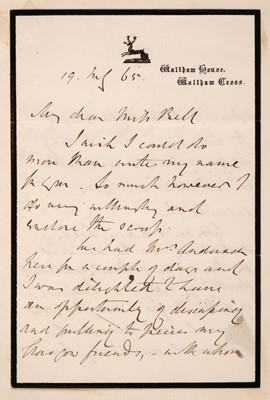 Waltham House,
Waltham Cross.
19. 65.
My dear Miss Bell
I wish I could do
more than write my name
for you. So much however I
do very willingly and
enclose the scrap.
We had Mrs
here for a couple of days and
I was delighted to have
an opportunity of discussing
and pulling to pieces my
Glasgow friends, - with whom